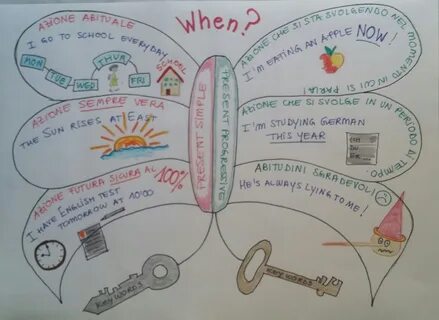 When?
AZIONE ABITUALE
I GO TO SCHOOL EVERYDAY
MON
TUE
WED
THUR
FRI
SCHOOL
AZIONE SEMPRE VERA
THE SUN RISES AT EAST
AZIONE FUTURA SICURA AL 100%
I HAVE ENGLISH TEST
TOMORROW AT 10'00
PRESENT SIMPLE
PRESENT PROGRESSIVE
AZIONE CHE SI STA SVOLGENDO NEL MOMENTO
IN CUI SI PARLA!
I'M EATING AN APPLE NOW!
AZIONE CHE SI SVOLGE IN UN PERIODO DI TEMPO
I'M STUDYING GERMAN
THIS YEAR
ICH
DU
ER
ABITUDINI SGRADEVOLI
HE'S ALWAYS LYING TO ME!
KEY WORDS
KEY WORDS